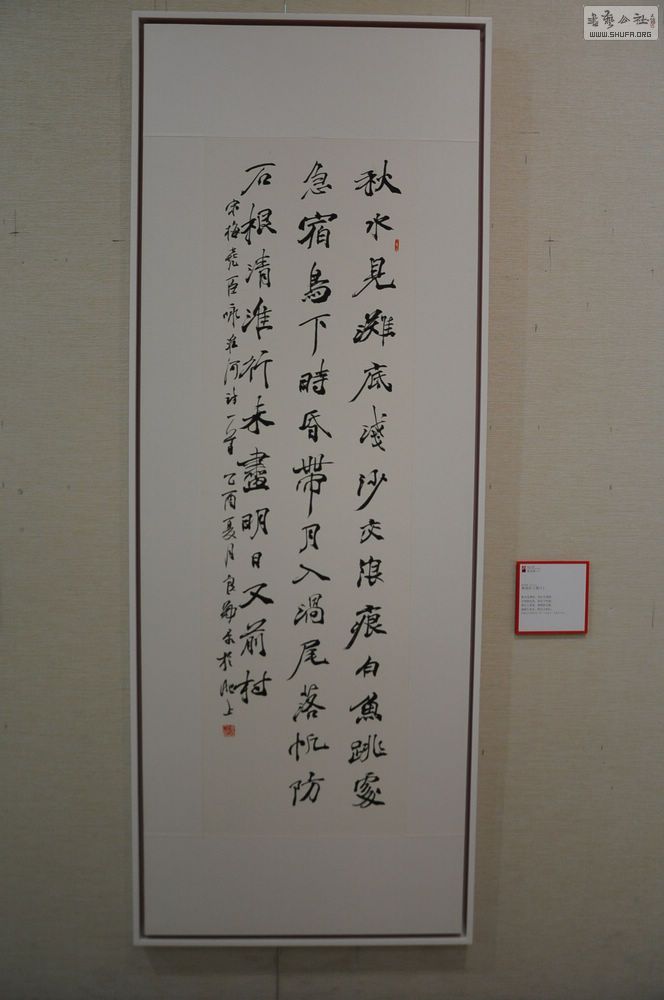 秋水見灘底淺沙交浪痕白魚跳處
急宿鳥下時昏帶月入渦尾落帆防
石根清淮行未盡明日又前村
宋梅堯臣咏淮河詩一首乙酉夏月良勤書於肥上
書藝公社
WWW.SHUFA.ORG